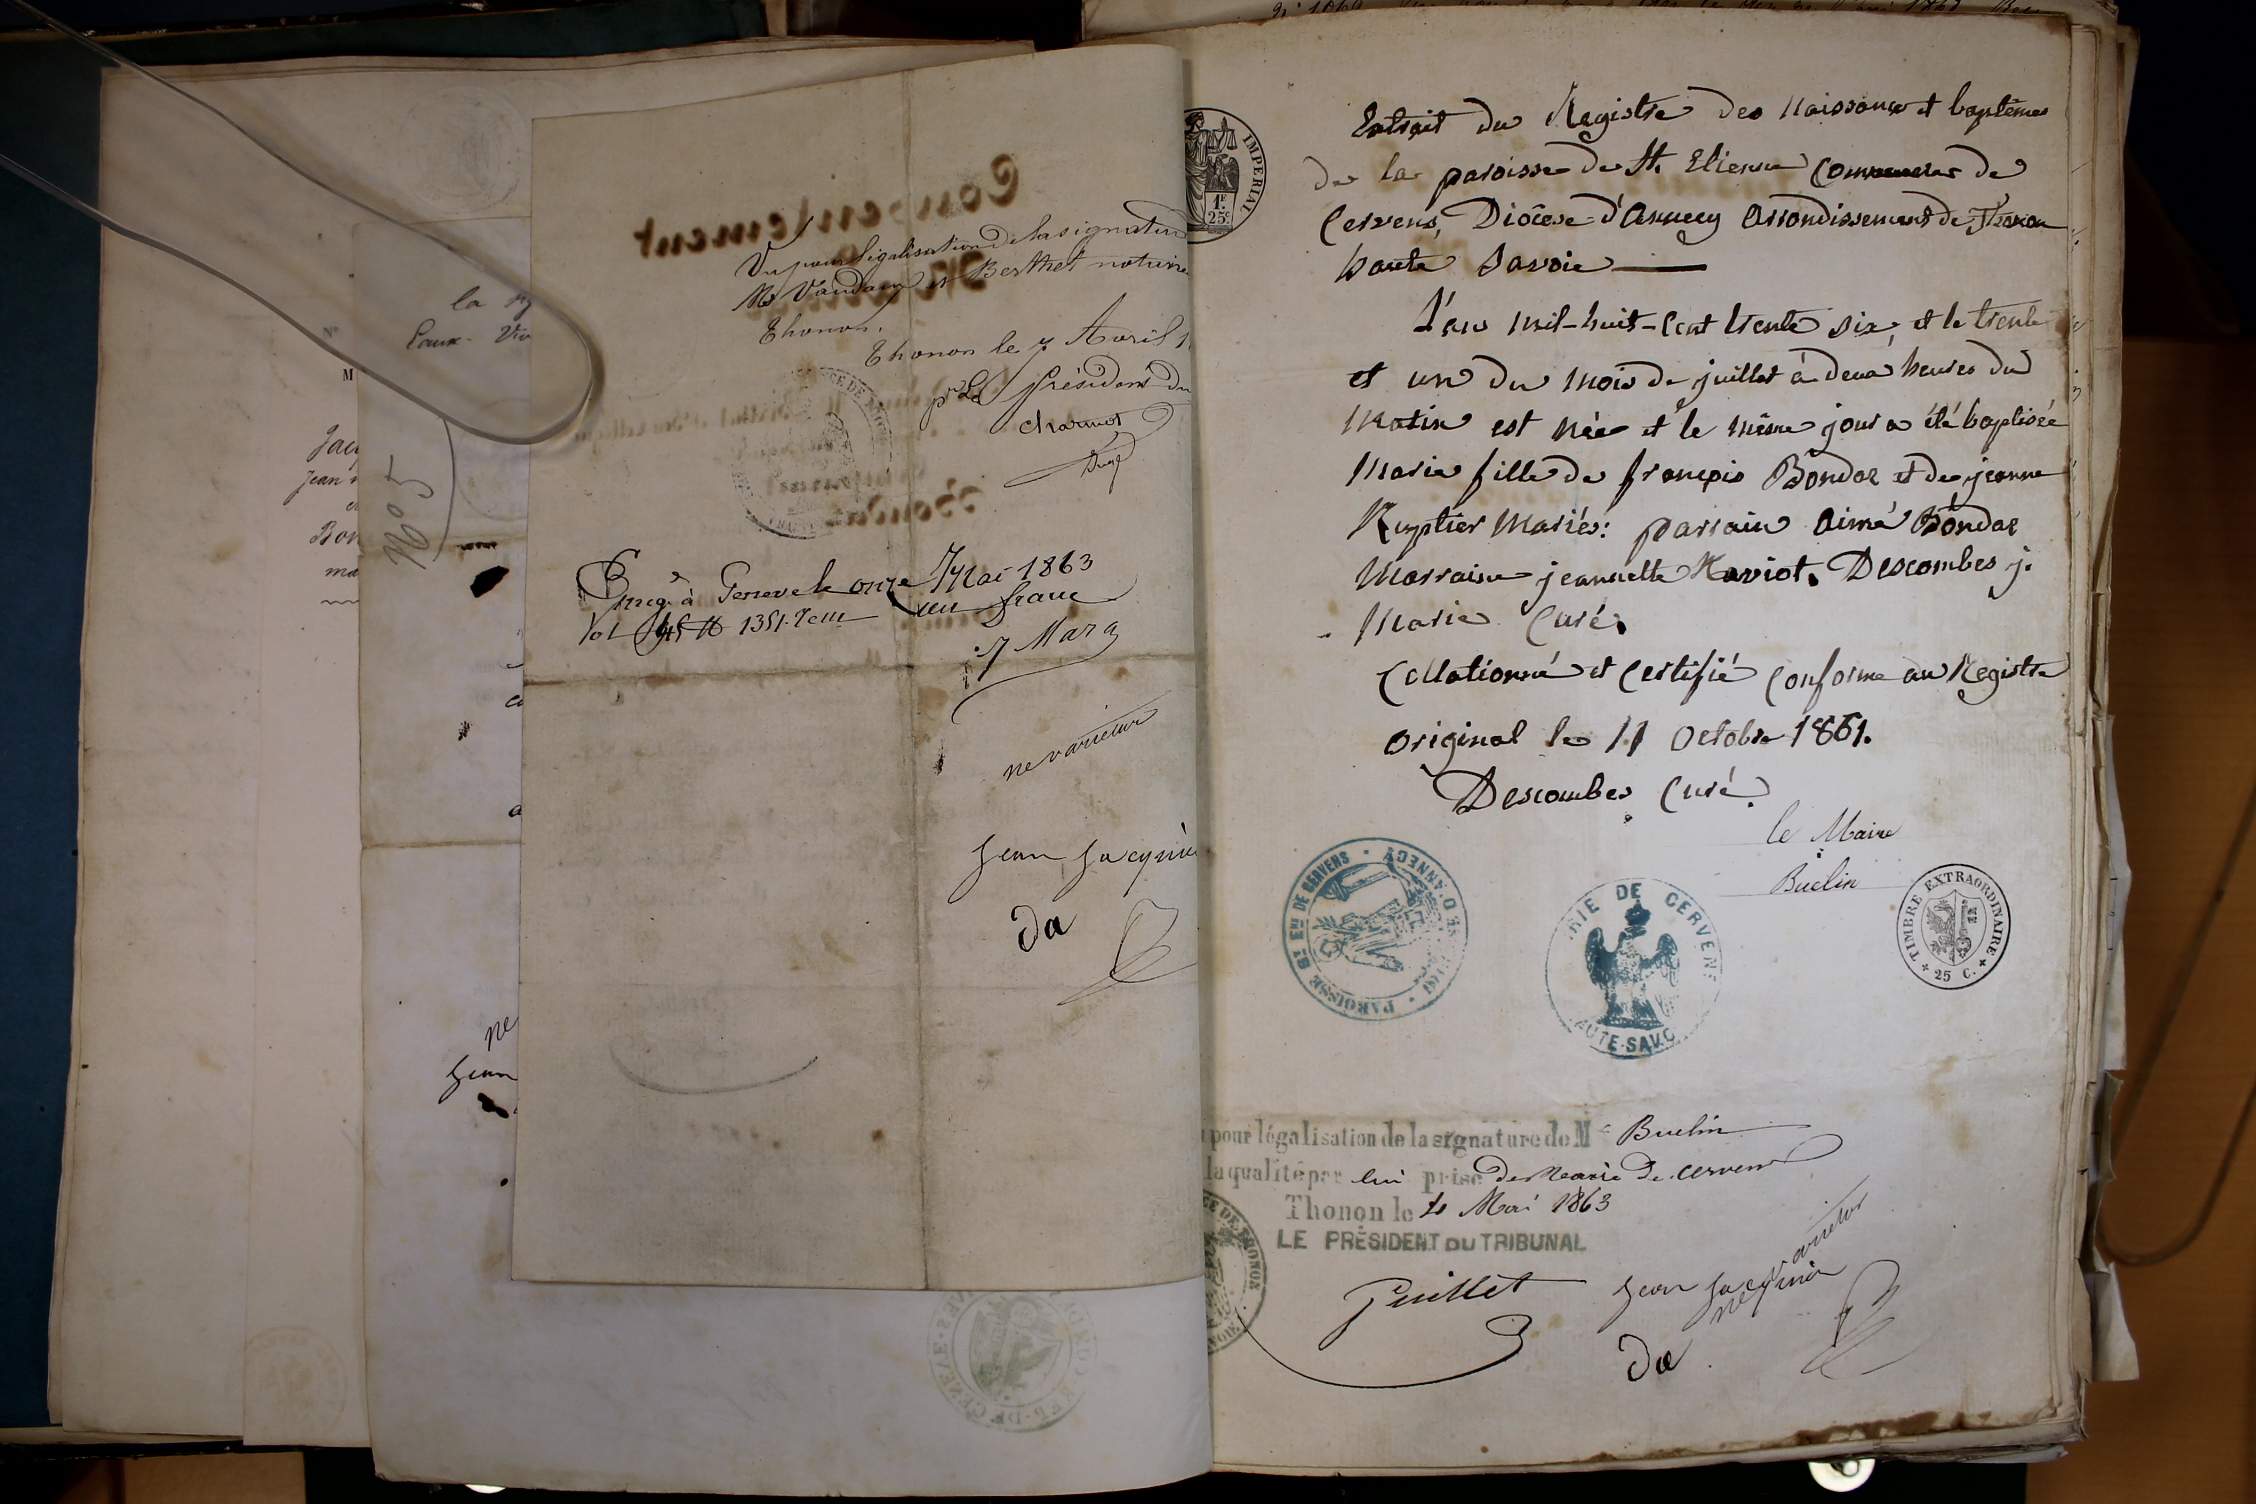 la
Eaux-Viv
M
Jacq
Jean
Bon
ma
No 5
ne
Jean
Consentement
Vu pour légalisation de la signature
Mr Vaudaux et Berthet notaire
Thonon.
Thonon le 7 Avril 1
pr Le Président du
Charmot
Juge
Enreg. à Geneve le onze Mai 1863
Vol un franc
7 Mara
ne varietur
Jean Jacquier
da
IMPERIAL
1F
25C
Extrait du Registre des Naissances et baptêmes
de la paroisse de St. Etienne Commune de
Cervens, Diocèse d'Annecy Arrondissement de Thonon
haute Savoie
L'an mil-huit-cent trente six et le trente
et un du mois de juillet à deux heures du
Matin est née et le même jour a été baptisée
Marie fille de françois Bondaz et de jeanne
Ruptier Mariés: parrain Aimé Bondaz
Marraine jeannette Naviot. Descombes j.
Marie Curé.
Collationné et Certifié Conforme au Registre
Original le 11 Octobre 1861.
Descombes Curé.
le Maire
Buelin
PAROISSE St ENE DE CERVENS
SE D'ANNECY
RIE DE CERVENS
AUTE-SAVO
TIMBRE EXTRAORDINAIRE
25 C.
pour légalisation de la signature de Mr Buelin
la qualité par lui prise de Maire de Cervens
Thonon le Mai 1863
LE PRÉSIDENT DU TRIBUNAL
CE DE THONON
Guillet
Jean Jacquier
ne varietur
da